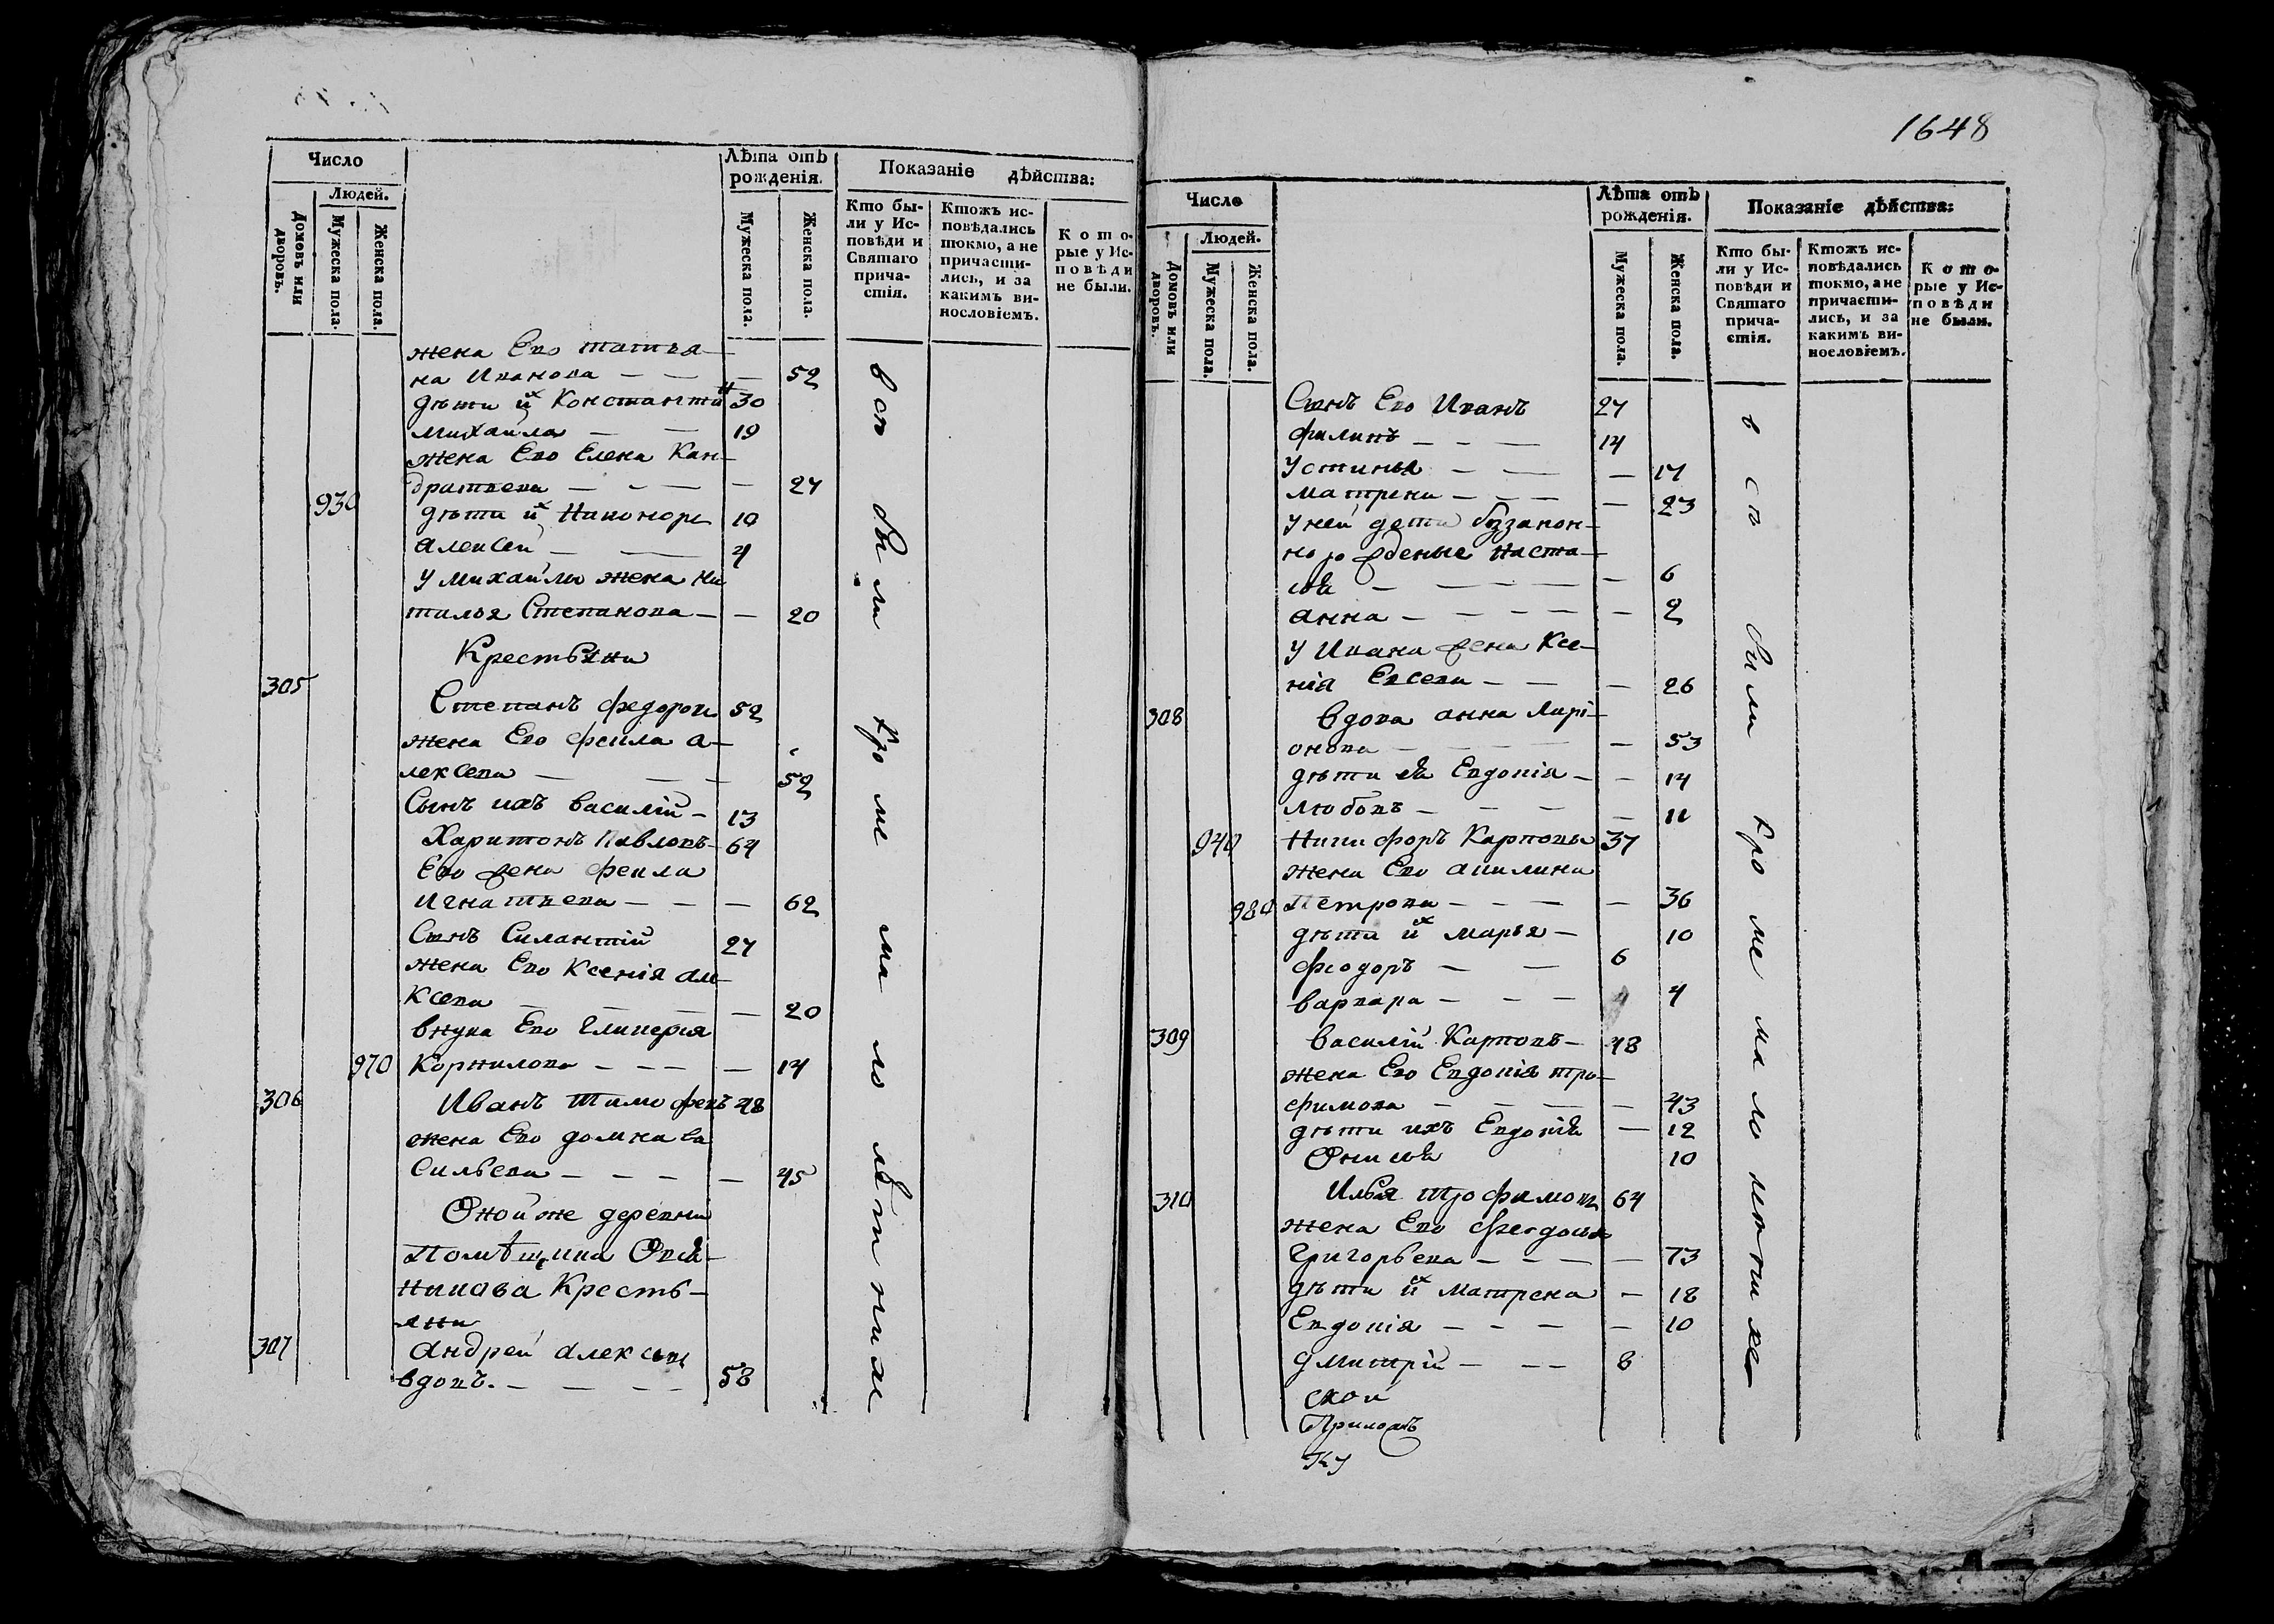 Число
Людей.
Домовъ или дворовъ.
Мужеска пола.
Женска пола.
Лѣта отъ рожденія.
Мужеска пола.
Женска пола.
Показаніе дѣйства:
Кто бы-
ли у Ис-
повѣди и
Святаго
прича-
стія.
Ктожъ ис-
повѣдались
токмо, а не
причасти-
лись, и за
какимъ ви-
нословіемъ.
Кото-
рые у Ис-
повѣди
не были.
жена Его татья-
на Иванова — — — 52
дѣти их Константин 30
михайла — — 19
жена Его Елена Кан-
дратьева — — — 27
930 дѣти их Никоноръ 10
алексей — — 4
у михайлы жена На
талья Степанова — — 20
Крестьяни
305 Степанъ федоров 52
жена Его фекла а-
лексева — — — 52
Сынъ ихъ василій — 13
Харитонъ Павловъ — 64
Его жена фекла
игнатьева — — — 62
Сынъ Силантій 27
жена Его Ксенія але-
ксева — — — 20
внука Его Гликерия
970 Корнилова — — — — 14
306 Иванъ тимофевъ 48
жена Его домна ва
сильева — — — — 45
Оной же деревни
Помѣщика Овся-
никова Кресть-
яни
307 андрей алексеев
вдовъ. — — — — 58
всѣ были кроме малолѣтних
1648
Число
Людей.
Домовъ или дворовъ.
Мужеска пола.
Женска пола.
Лѣта отъ рожденія.
Мужеска пола.
Женска пола.
Показаніе дѣйства:
Кто бы-
ли у Ис-
повѣди и
Святаго
прича-
стія.
Ктожъ ис-
повѣдались
токмо, а не
причасти-
лись, и за
какимъ ви-
нословіемъ.
Кото-
рые у Ис-
повѣди
не были.
Сынъ Его Иванъ 27
филипъ — — — 14
Устинья — — — 17
матрена — — — — 23
у ней дети беззакон-
но рожденые Наста-
сья — — — — — 6
анна — — — — — 2
у Ивана жена Ксе-
нія Евсева — — — 26
308 вдова анна Лари-
онова — — — — — 53
дѣти ея Евдокія — — 14
любовь — — — — 11
940 Никифоръ Карповъ 37
жена Его акилина
980 Петрова — — — — 36
дѣти их марья — 10
феодоръ — — 6
варвара — — — 4
309 василій Карповъ — 48
жена Его Евдокія тро-
фимова — — — — 43
дѣти ихъ Евдокія — 12
Онисья 10
310 Илья трофимовъ 64
жена Его Федосья
Григорьева — — — — 73
дѣти их матрена — 18
Евдокія — — — — 10
дмитрій — — — 8
ской
Приложъ
ку
всѣ были кроме малолѣтних